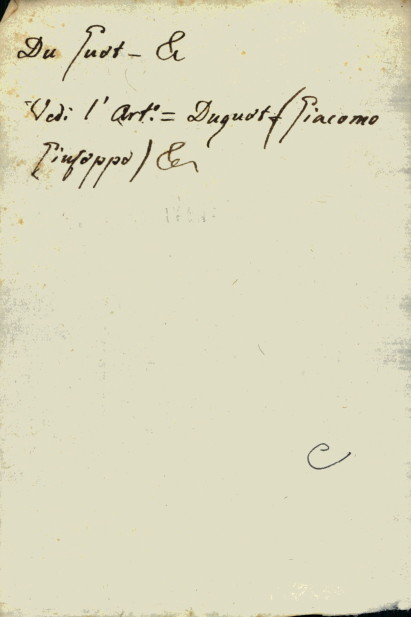 Du Guet - &
Vedi l' Art.º = Duguet (Giacomo
Giuseppe) &
C